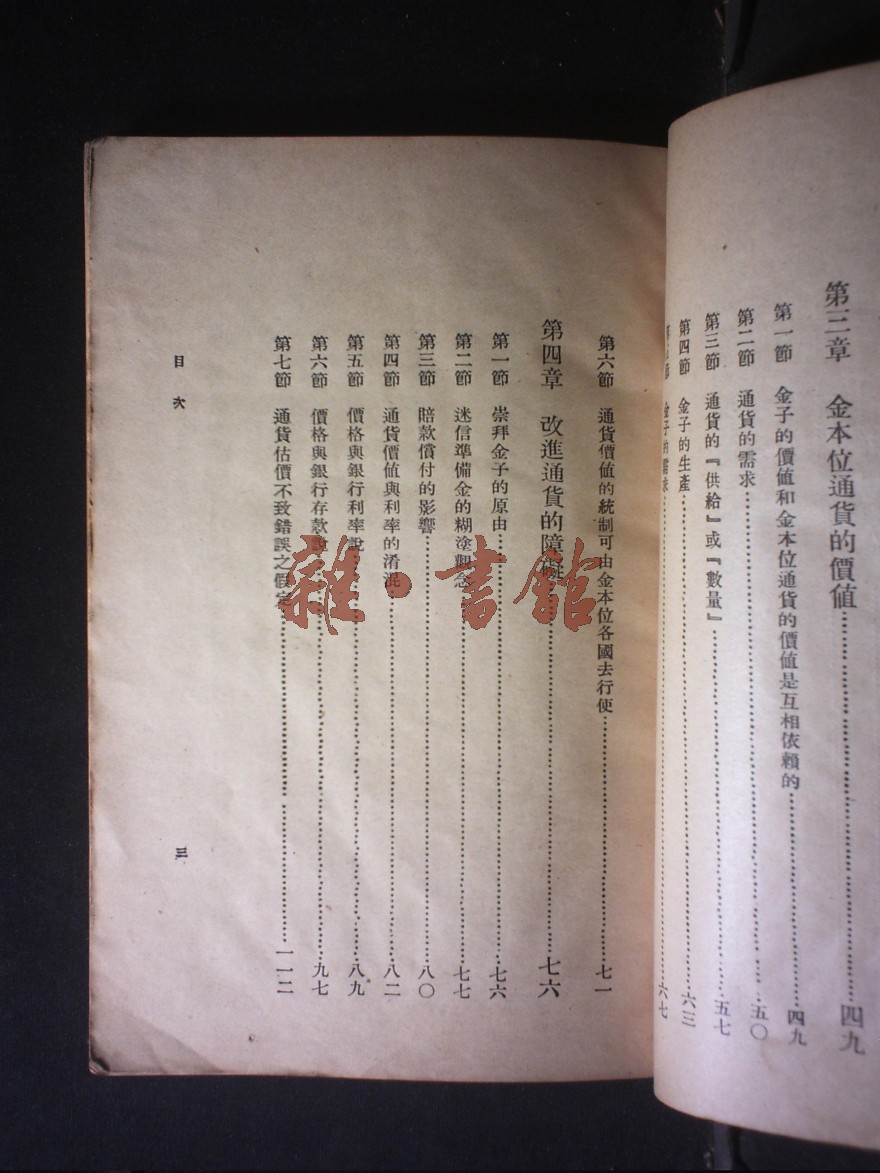 第三章　金本位通貨的價值……四九
第一節　金子的價值和金本位通貨的價值是互相依賴的……四九
第二節　通貨的需求……五〇
第三節　通貨的『供給』或『數量』……五七
第四節　金子的生產……六三
第五節　金子的需求……六七
第六節　通貨價值的統制可由金本位各國去行使……七一
第四章　改進通貨的障礙……七六
第一節　崇拜金子的原由……七六
第二節　迷信準備金的糊塗觀念……七七
第三節　賠款償付的影響……八〇
第四節　通貨價值與利率的淆混……八二
第五節　價格與銀行利率說……八九
第六節　價格與銀行存款說……九七
第七節　通貨估價不致錯誤之假定……一一二
目次
三
雜·書館